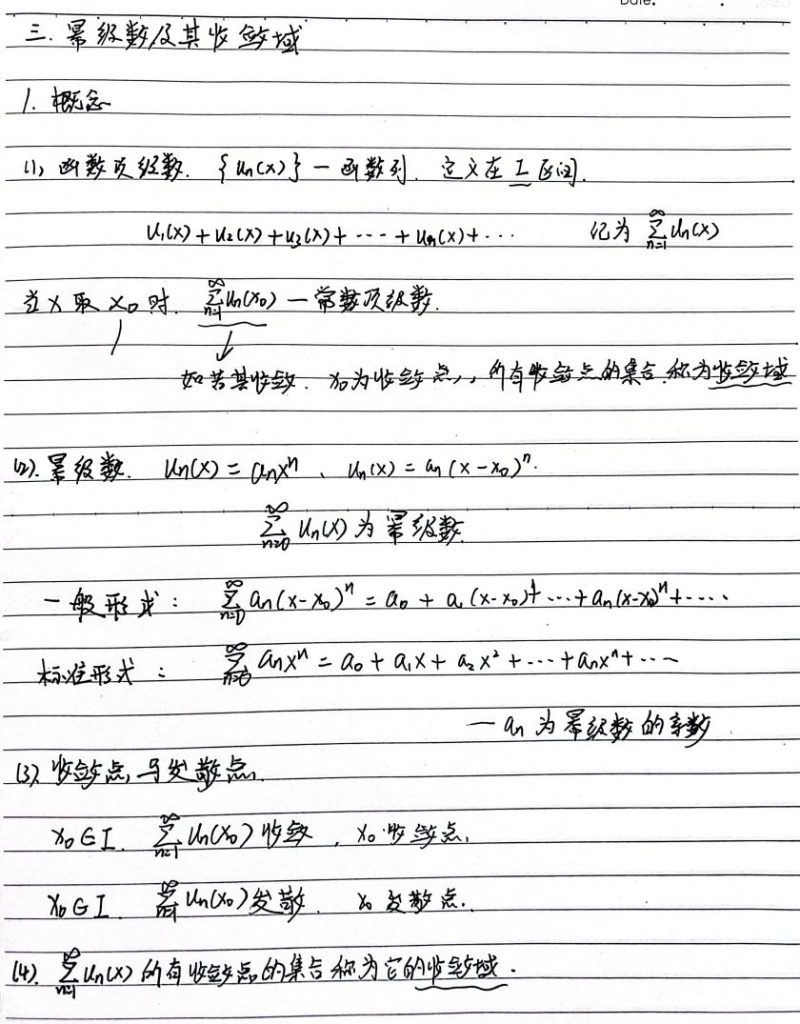 Date.
三. 幂级数及其收敛域
1. 概念
(1) 函数项级数. {uₙ(x)} 一函数列. 定义在 I 区间.
u₁(x)+u₂(x)+u₃(x)+⋯+uₙ(x)+⋯ 记为 ∑_{n=1}^{∞} uₙ(x)
当 x 取 x₀ 时. ∑_{n=1}^{∞} uₙ(x₀) — 常数项级数.
如若其收敛. x₀为收敛点, 所有收敛点的集合. 称为收敛域
(2). 幂级数. uₙ(x) = aₙxⁿ 、 uₙ(x) = aₙ(x-x₀)ⁿ.
∑_{n=0}^{∞} uₙ(x) 为幂级数.
一般形式: ∑_{n=0}^{∞} aₙ(x-x₀)ⁿ = a₀ + a₁(x-x₀)+⋯+aₙ(x-x₀)ⁿ+⋯
标准形式: ∑_{n=0}^{∞} aₙxⁿ = a₀ + a₁x + a₂x² +⋯+aₙxⁿ+⋯
— aₙ 为幂级数的系数
(3) 收敛点, 与发散点.
x₀∈I. ∑_{n=1}^{∞} uₙ(x₀) 收敛, x₀ 收敛点.
x₀∈I. ∑_{n=1}^{∞} uₙ(x₀) 发散. x₀ 发散点.
(4). ∑_{n=1}^{∞} uₙ(x) 所有收敛点的集合称为它的收敛域.